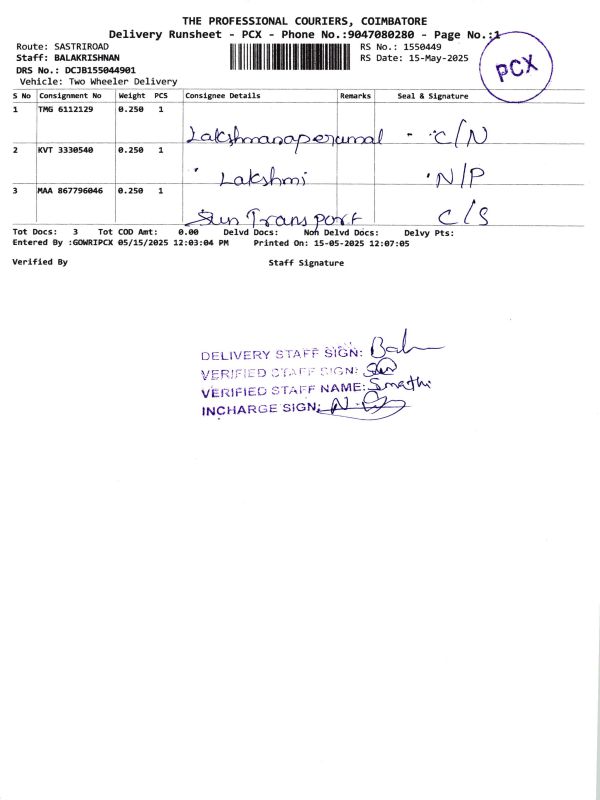 THE PROFESSIONAL COURIERS, COIMBATORE
Delivery Runsheet - PCX - Phone No.:9047080280 - Page No.:1
Route: SASTRIROAD
RS No.: 1550449
Staff: BALAKRISHNAN
RS Date: 15-May-2025
DRS No.: DCJB155044901
Vehicle: Two Wheeler Delivery
PCX
S No Consignment No Weight PCS Consignee Details Remarks Seal & Signature
1 TMG 6112129 0.250 1
Lakshmanaperumal - C/N
2 KVT 3330540 0.250 1
Lakshmi N/P
3 MAA 867796046 0.250 1
Sun Transport C/S
Tot Docs: 3 Tot COD Amt: 0.00 Delvd Docs: Non Delvd Docs: Delvy Pts:
Entered By :GOWRIPCX 05/15/2025 12:03:04 PM Printed On: 15-05-2025 12:07:05
Verified By Staff Signature
DELIVERY STAFF SIGN:
VERIFIED STAFF SIGN:
VERIFIED STAFF NAME:
INCHARGE SIGN: